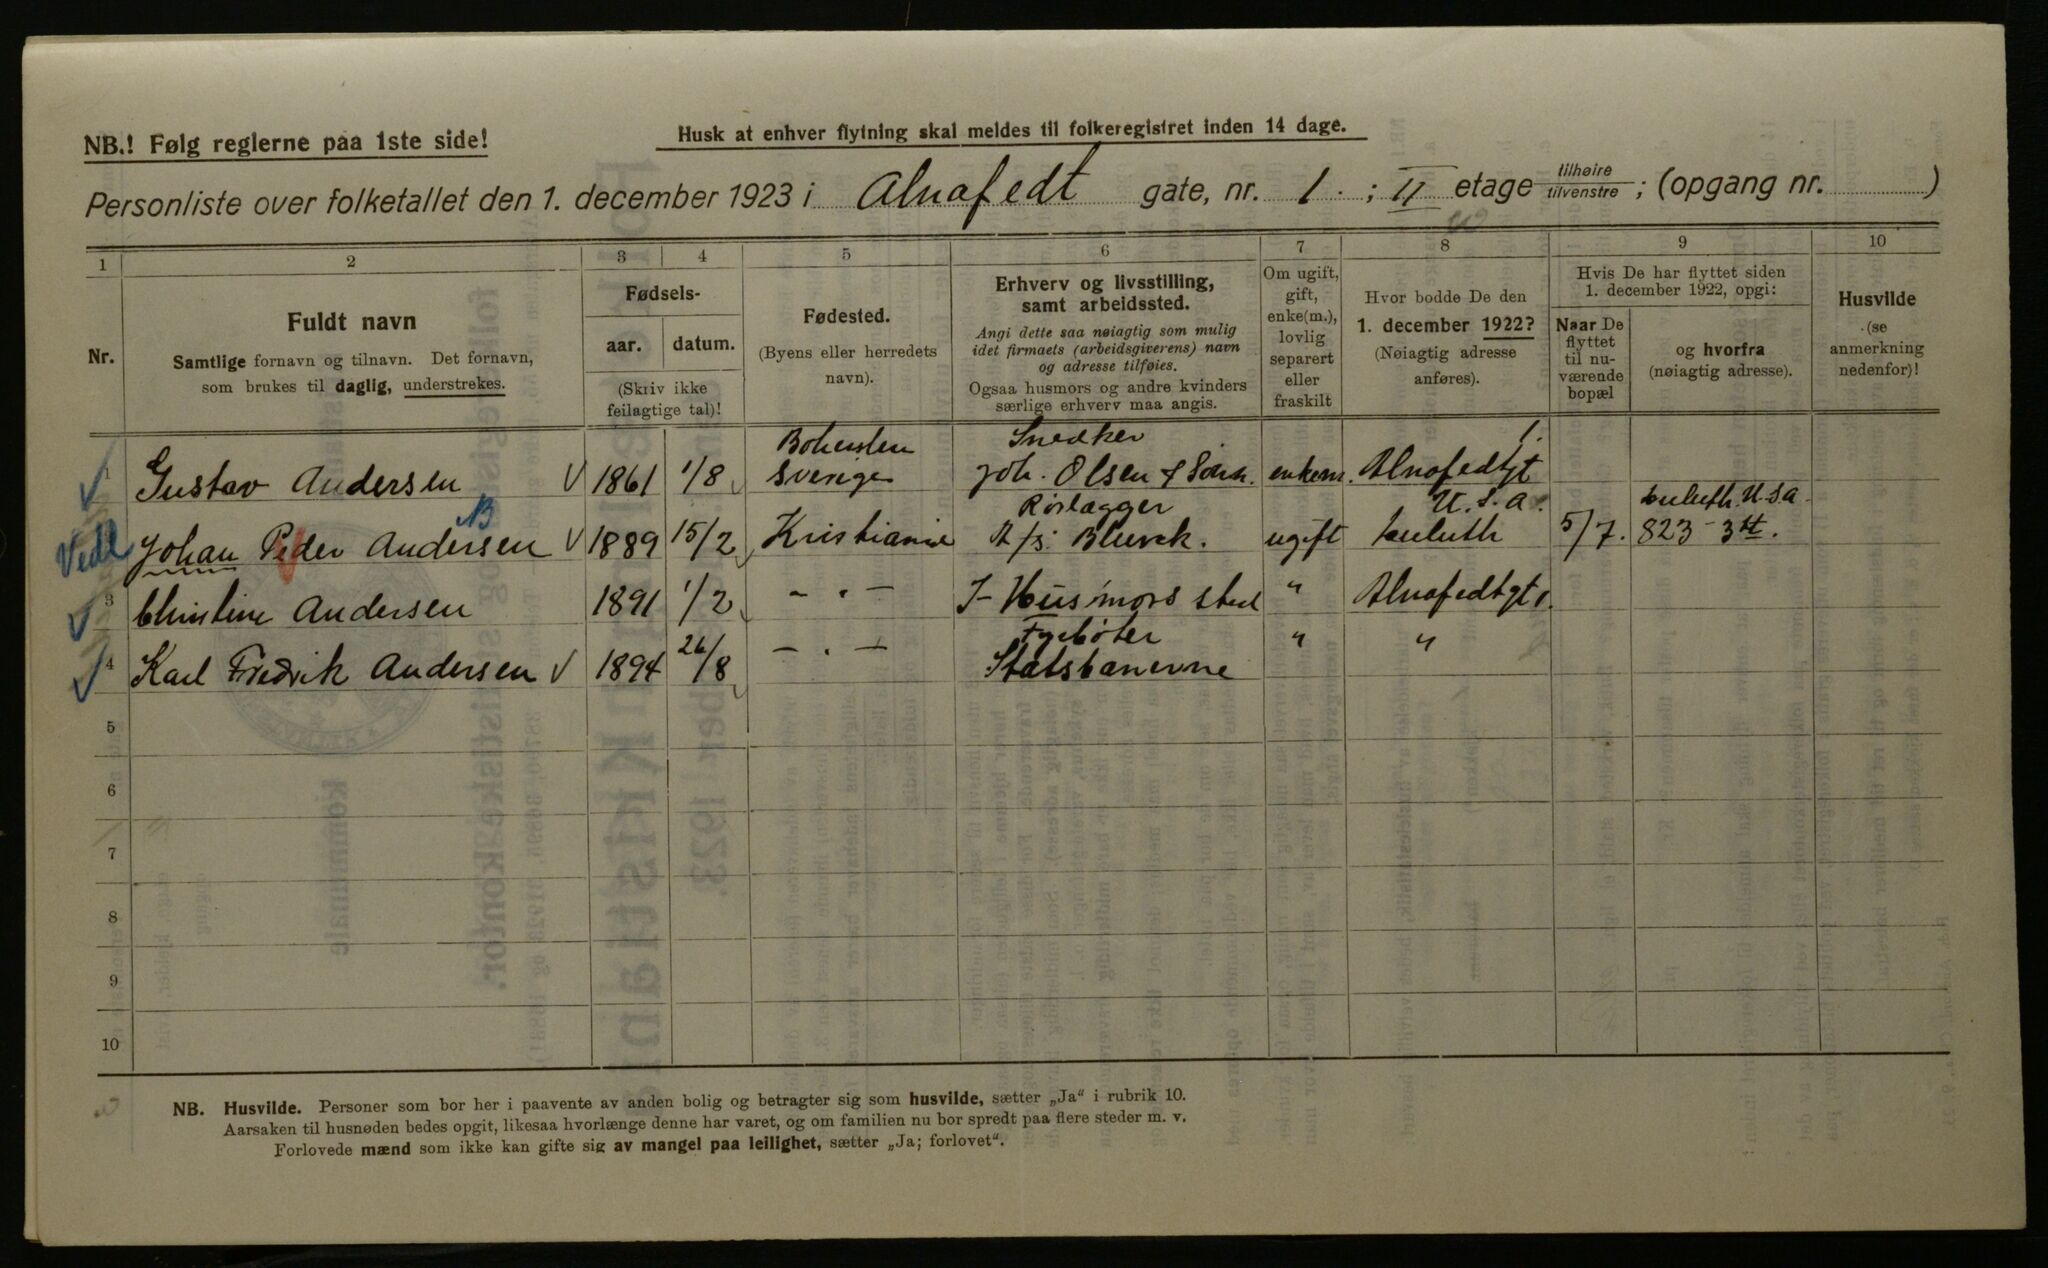 NB.! Følg reglerne paa 1ste side!
Husk at enhver flytning skal meldes til folkeregistret inden 14 dage.
Personliste over folketallet den 1. december 1923 i Alnafedt gate, nr. 1. ; II etage tilhøire tilvenstre ; (opgang nr. )
1 2 3 4 5 6 7 8 9 10
Nr.
Fuldt navn
Samtlige fornavn og tilnavn. Det fornavn,
som brukes til daglig, understrekes.
Fødsels-
aar. datum.
(Skriv ikke
feilagtige tal)!
Fødested.
(Byens eller herredets
navn).
Erhverv og livsstilling,
samt arbeidssted.
Angi dette saa nøiagtig som mulig
idet firmaets (arbeidsgiverens) navn
og adresse tilføies.
Ogsaa husmors og andre kvinders
særlige erhverv maa angis.
Om ugift,
gift,
enke(m.),
lovlig
separert
eller
fraskilt
Hvor bodde De den
1. december 1922?
(Nøiagtig adresse
anføres).
Hvis De har flyttet siden
1. december 1922, opgi:
Naar De
flyttet
til nu-
værende
bopæl
og hvorfra
(nøiagtig adresse).
Husvilde
(se
anmerkning
nedenfor)!
Snedker 1.
1 Gustav Andersen V 1861 1/8 Sverige Joh. Olsen & Søn. enkem. Alnafedtgt
Rørlægger U.S.A. U.S.A.
Johan Peder Andersen V 1889 15/2 Kristiania A/s. ugift 5/7. 823 - 3
3 Christine Andersen 1891 1/2 - " - Husmors sted " Alnafedtgt 1.
Fyrbøter
4 Karl Fredrik Andersen V 1894 26/8 - " - Statsbanerne " "
5
6
7
8
9
10
NB. Husvilde. Personer som bor her i paavente av anden bolig og betragter sig som husvilde, sætter „Ja" i rubrik 10.
Aarsaken til husnøden bedes opgit, likesaa hvorlænge denne har varet, og om familien nu bor spredt paa flere steder m. v.
Forlovede mænd som ikke kan gifte sig av mangel paa leilighet, sætter „Ja; forlovet".